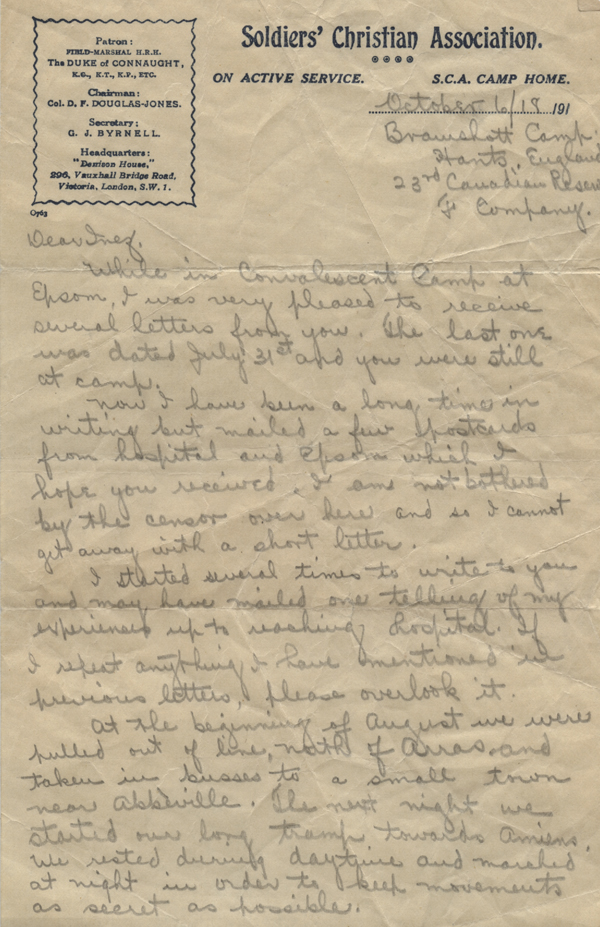 Patron:
FIELD-MARSHAL H.R.H.
The DUKE of CONNAUGHT,
K.G., K.T., K.P., ETC.
Chairman:
Col. D. F. DOUGLAS-JONES.
Secretary:
G. J. BYRNELL.
Headquarters:
"Denison House,"
296, Vauxhall Bridge Road,
Victoria, London, S.W. 1.
O763
Soldiers' Christian Association.
ON ACTIVE SERVICE. S.C.A. CAMP HOME.
October 6/18 191
Bramshott Camp.
Hants, England
23rd Canadian Reserv
F Company.
Dear Inez.
While in Convalescent Camp at
Epsom, I was very pleased to receive
several letters from you. The last one
was dated July 31st and you were still
at camp.
Now I have been a long time in
writing but mailed a few postcards
from hospital and Epsom which I
hope you received. I am not bothered
by the censor over here and so I cannot
get away with a short letter.
I started several times to write to you
and may have mailed one telling of my
experiences up to reaching hospital. If
I repeat anything I have mentioned in
previous letters, please overlook it.
At the beginning of August we were
pulled out of line, north of Arras, and
taken in busses to a small town
near Abbeville. The next night we
started our long tramp towards Amiens.
We rested during daytime and marched
at night in order to keep movements
as secret as possible.